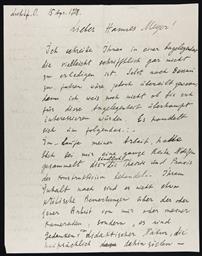 15 Apr. 1928.
Lieber Hannes Meyer!
Ich schreibe Ihnen in einer Angelegenheit
die vielleicht schriftlich gar nicht
zu erledigen ist. Selbst nach Dessau
zu fahren wäre jedoch übereilt gewesen,
denn ich weiss noch nicht ob Sie sich
für diese Angelegenheit überhaupt
interessieren würden. Es handelt
sich um folgendes:
Im Laufe meiner Arbeit, haben
sich bei mir eine ganze Reihe Notizen
gesammelt die die Theorie und Praxis
der Konstruktion behandeln. Ihrem
Inhalt nach sind es nicht etwa
kritische Bemerkungen über die oder
jene Arbeit von mir oder meiner
Kameraden, sondern, es sind
Gedanken didaktischer Natur, die